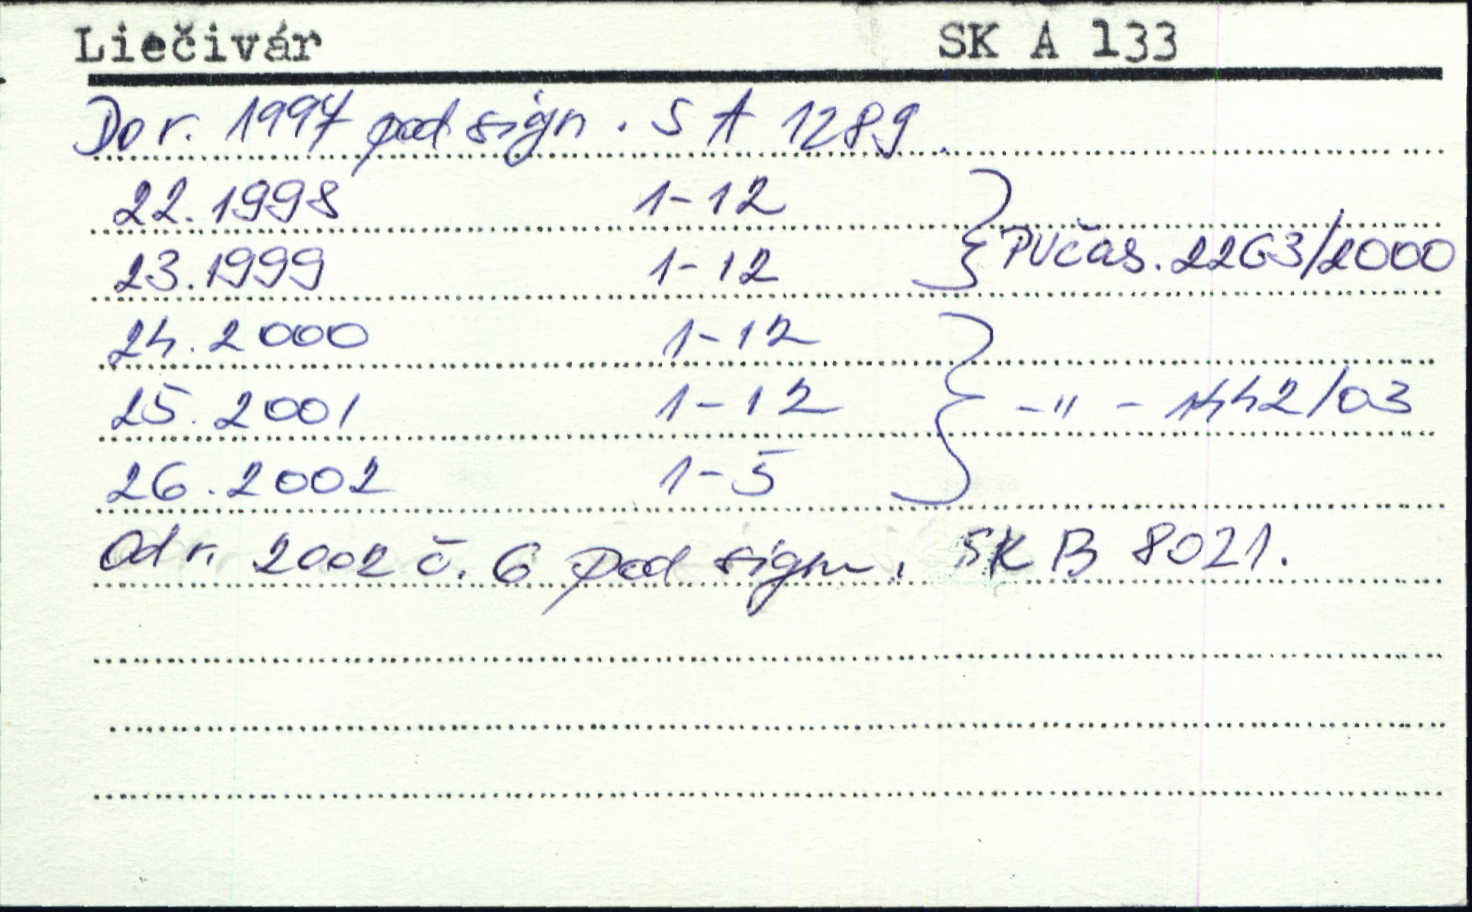 Liečivár SK A 133
Do r. 1997 pod sign. S A 1289.
22.1998 1-12
23.1999 1-12 PVčas. 2263/2000
24.2000 1-12
25.2001 1-12 -"- 1442/03
26.2002 1-5
Od r. 2002 č. 6 pod sign. SK B 8021.